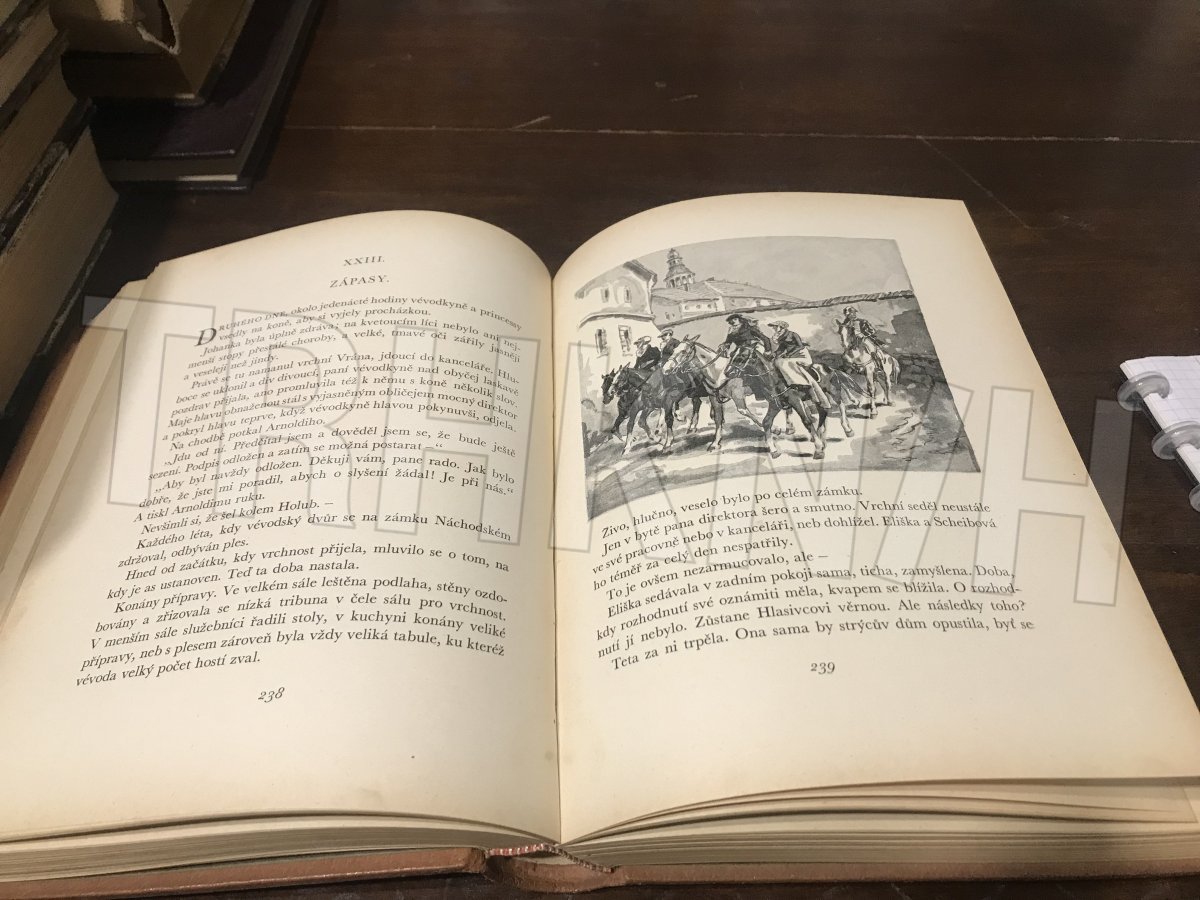 XXIII.
ZÁPASY.
DRUHÉHO DNE, okolo jedenácté hodiny vévodkyně a princessy
vsedly na koně, aby si vyjely procházkou.
Johanka byla úplně zdráva; na kvetoucím líci nebylo ani nej-
menší stopy přestálé choroby, a velké, tmavé oči zářily jasněji
a veseleji než jindy.
Právě se tu namanul vrchní Vrána, jdoucí do kanceláře. Hlu-
boce se uklonil a div divoucí, paní vévodkyně nad obyčej laskavě
pozdrav přijala, ano promluvila též k němu s koně několik slov.
Maje hlavu obnaženou stál s vyjasněným obličejem mocný direktor
a pokryl hlavu teprve, když vévodkyně hlavou pokynuvši, odjela.
Na chodbě potkal Arnoldiho.
„Jdu od ní. Předčítal jsem a dověděl jsem se, že bude ještě
sezení. Podpis odložen a zatím se možná postarat —“
„Aby byl navždy odložen. Děkuji vám, pane rado. Jak bylo
dobře, že jste mi poradil, abych o slyšení žádal! Je při nás.“
A tiskl Arnoldimu ruku.
Nevšimli si, že šel kolem Holub. —
Každého léta, kdy vévodský dvůr se na zámku Náchodském
zdržoval, odbýván ples.
Hned od začátku, kdy vrchnost přijela, mluvilo se o tom, na
kdy je as ustanoven. Teď ta doba nastala.
Konány přípravy. Ve velkém sále leštěna podlaha, stěny ozdo-
bovány a zřizovala se nízká tribuna v čele sálu pro vrchnost.
V menším sále služebníci řadili stoly, v kuchyni konány veliké
přípravy, neb s plesem zároveň byla vždy veliká tabule, ku kteréž
vévoda velký počet hostí zval.
238
Živo, hlučno, veselo bylo po celém zámku.
Jen v bytě pana direktora šero a smutno. Vrchní seděl neustále
ve své pracovně nebo v kanceláři, neb dohlížel. Eliška a Scheibová
ho téměř za celý den nespatřily.
To je ovšem nezarmucovalo, ale —
Eliška sedávala v zadním pokoji sama, ticha, zamyšlena. Doba,
kdy rozhodnutí své oznámiti měla, kvapem se blížila. O rozhod-
nutí jí nebylo. Zůstane Hlasivcovi věrnou. Ale následky toho?
Teta za ni trpěla. Ona sama by strýcův dům opustila, byť se
239
TRHKNIH